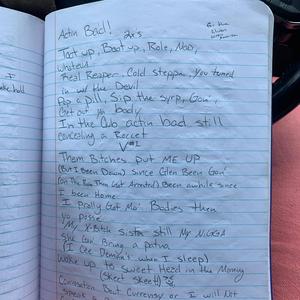 Actin Bad! 2x's
Toot up, Boot up, Role, Nod,
whateva
Real Reaper, Cold steppa, You tuned
in w/ the Devil
Pop a pill, Sip the syrp, Gon',
Get out yo body
In the Club actin bad still
concealing a Rocket
V#1
Them Bitches put ME UP
(But I Been Down) Since Glen Been Gon'
Been awhile since
I been Home
I prolly Got Mo' Bodies then
yo posse
My X-Bitch sista still My NIGGA
she Gon' Bring a patna
(I See Demon's when I sleep)
Woke up to sweet Head in the Morning
(Skeet Skeet)
Conversation Beat Currency or I will Not
Speak